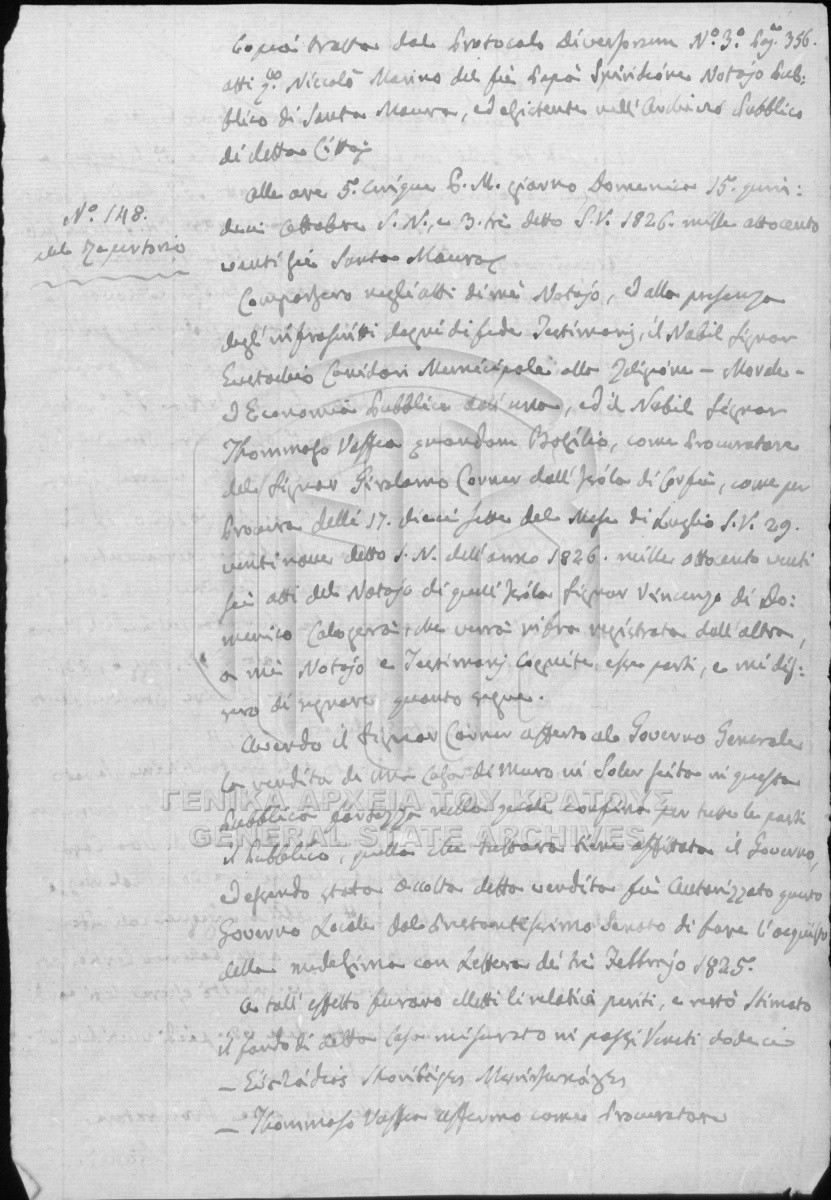 Copia tratta dal Protocolo Diversorum N.º 3.º Pag.ª 356.
atti q.m Niccolò Marino del fù Papà Spiridione Notajo Pub:
blico di Santa Maura, ed esistente nell'Archivio Pubblico
di detta Città
Alle ore 5. cinque P. M. giorno Domenica 15. quin:
deci Ottobre S. N., e 3. trè detto S. V. 1826. mille ottocento
venti sei Santa Maura
N.º 148.
del Repertorio
Comparsero negli atti di mè Notajo, ed alla presenza
degl'infrascritti degni di fede Testimonj, il Nobil Signor
Eustachio Municipale alla Religione – Morale –
ed Economia Pubblica dall'una, ed il Nobil Signor
Thommaso Vaffea quondam Basilio, come Procuratore
del Signor Girolamo Corner dall'Isola di Corfù, come per
Procura delli 17. dieci sette del Mese di Luglio S. V. 29.
venti nove detto S. N. dell'anno 1826. mille ottocento venti
sei atti del Notajo di quell'Isola Signor Vincenzo di Do:
menico Calogerà, che verrà infra registrata dall'altra,
a mè Notajo e Testimonj cognite esse parti, e mi dis:
sero di segnare quanto segue.
Avendo il Signor Corner offerto al Governo Generale
la vendita di una Casa di Muro in Soler sita in questa
Pubblica Fortezza nella quale confina per tutte le parti
il Pubblico, quella che tuttora tiene affittata il Governo,
ed essendo stata accolta detta vendita fù Autorizzato questo
Governo Locale dal Prestantissimo Senato di fare l'acquisto
della medesima con Lettera dei trè Febbrajo 1825.
A tall'effetto furono elletti li relativi periti, e restò Stimato
il fondo di detta Casa misurato in passi Veneti dodeci
– Thommaso Vaffea affermo come Procuratore
ΓΕΝΙΚΑ ΑΡΧΕΙΑ ΤΟΥ ΚΡΑΤΟΥΣ
GENERAL STATE ARCHIVES